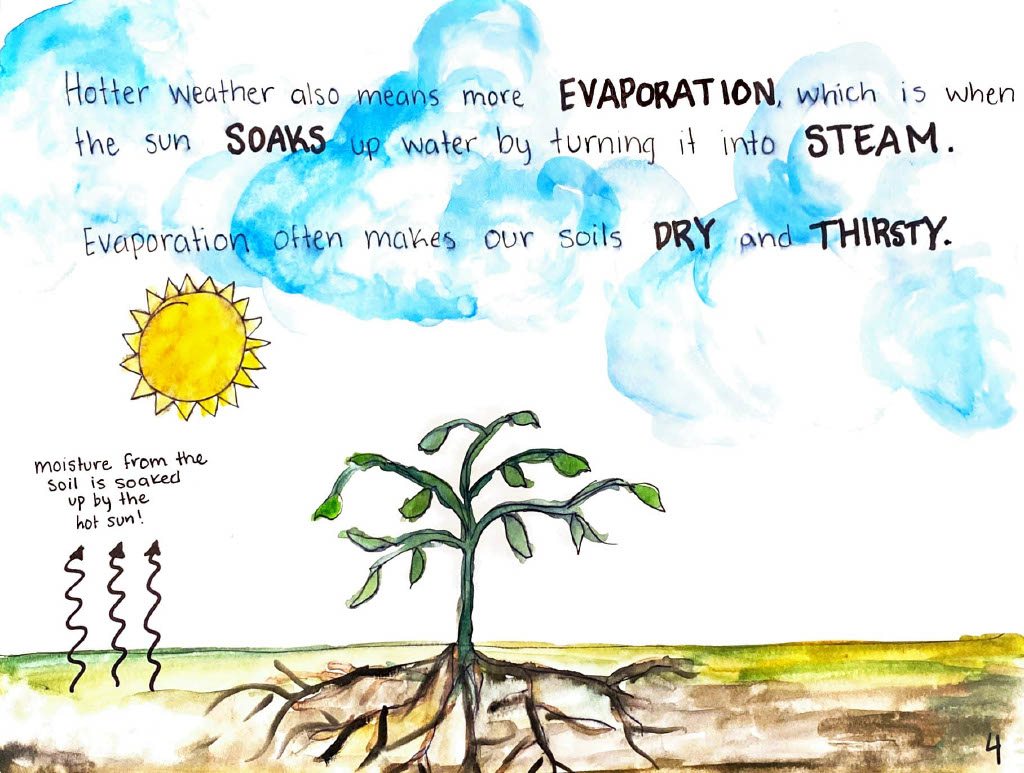 Hotter weather also means more EVAPORATION, which is when
the sun SOAKS up water by turning it into STEAM.
Evaporation often makes our soils DRY and THIRSTY.
moisture from the
soil is soaked
up by the
hot sun!
4